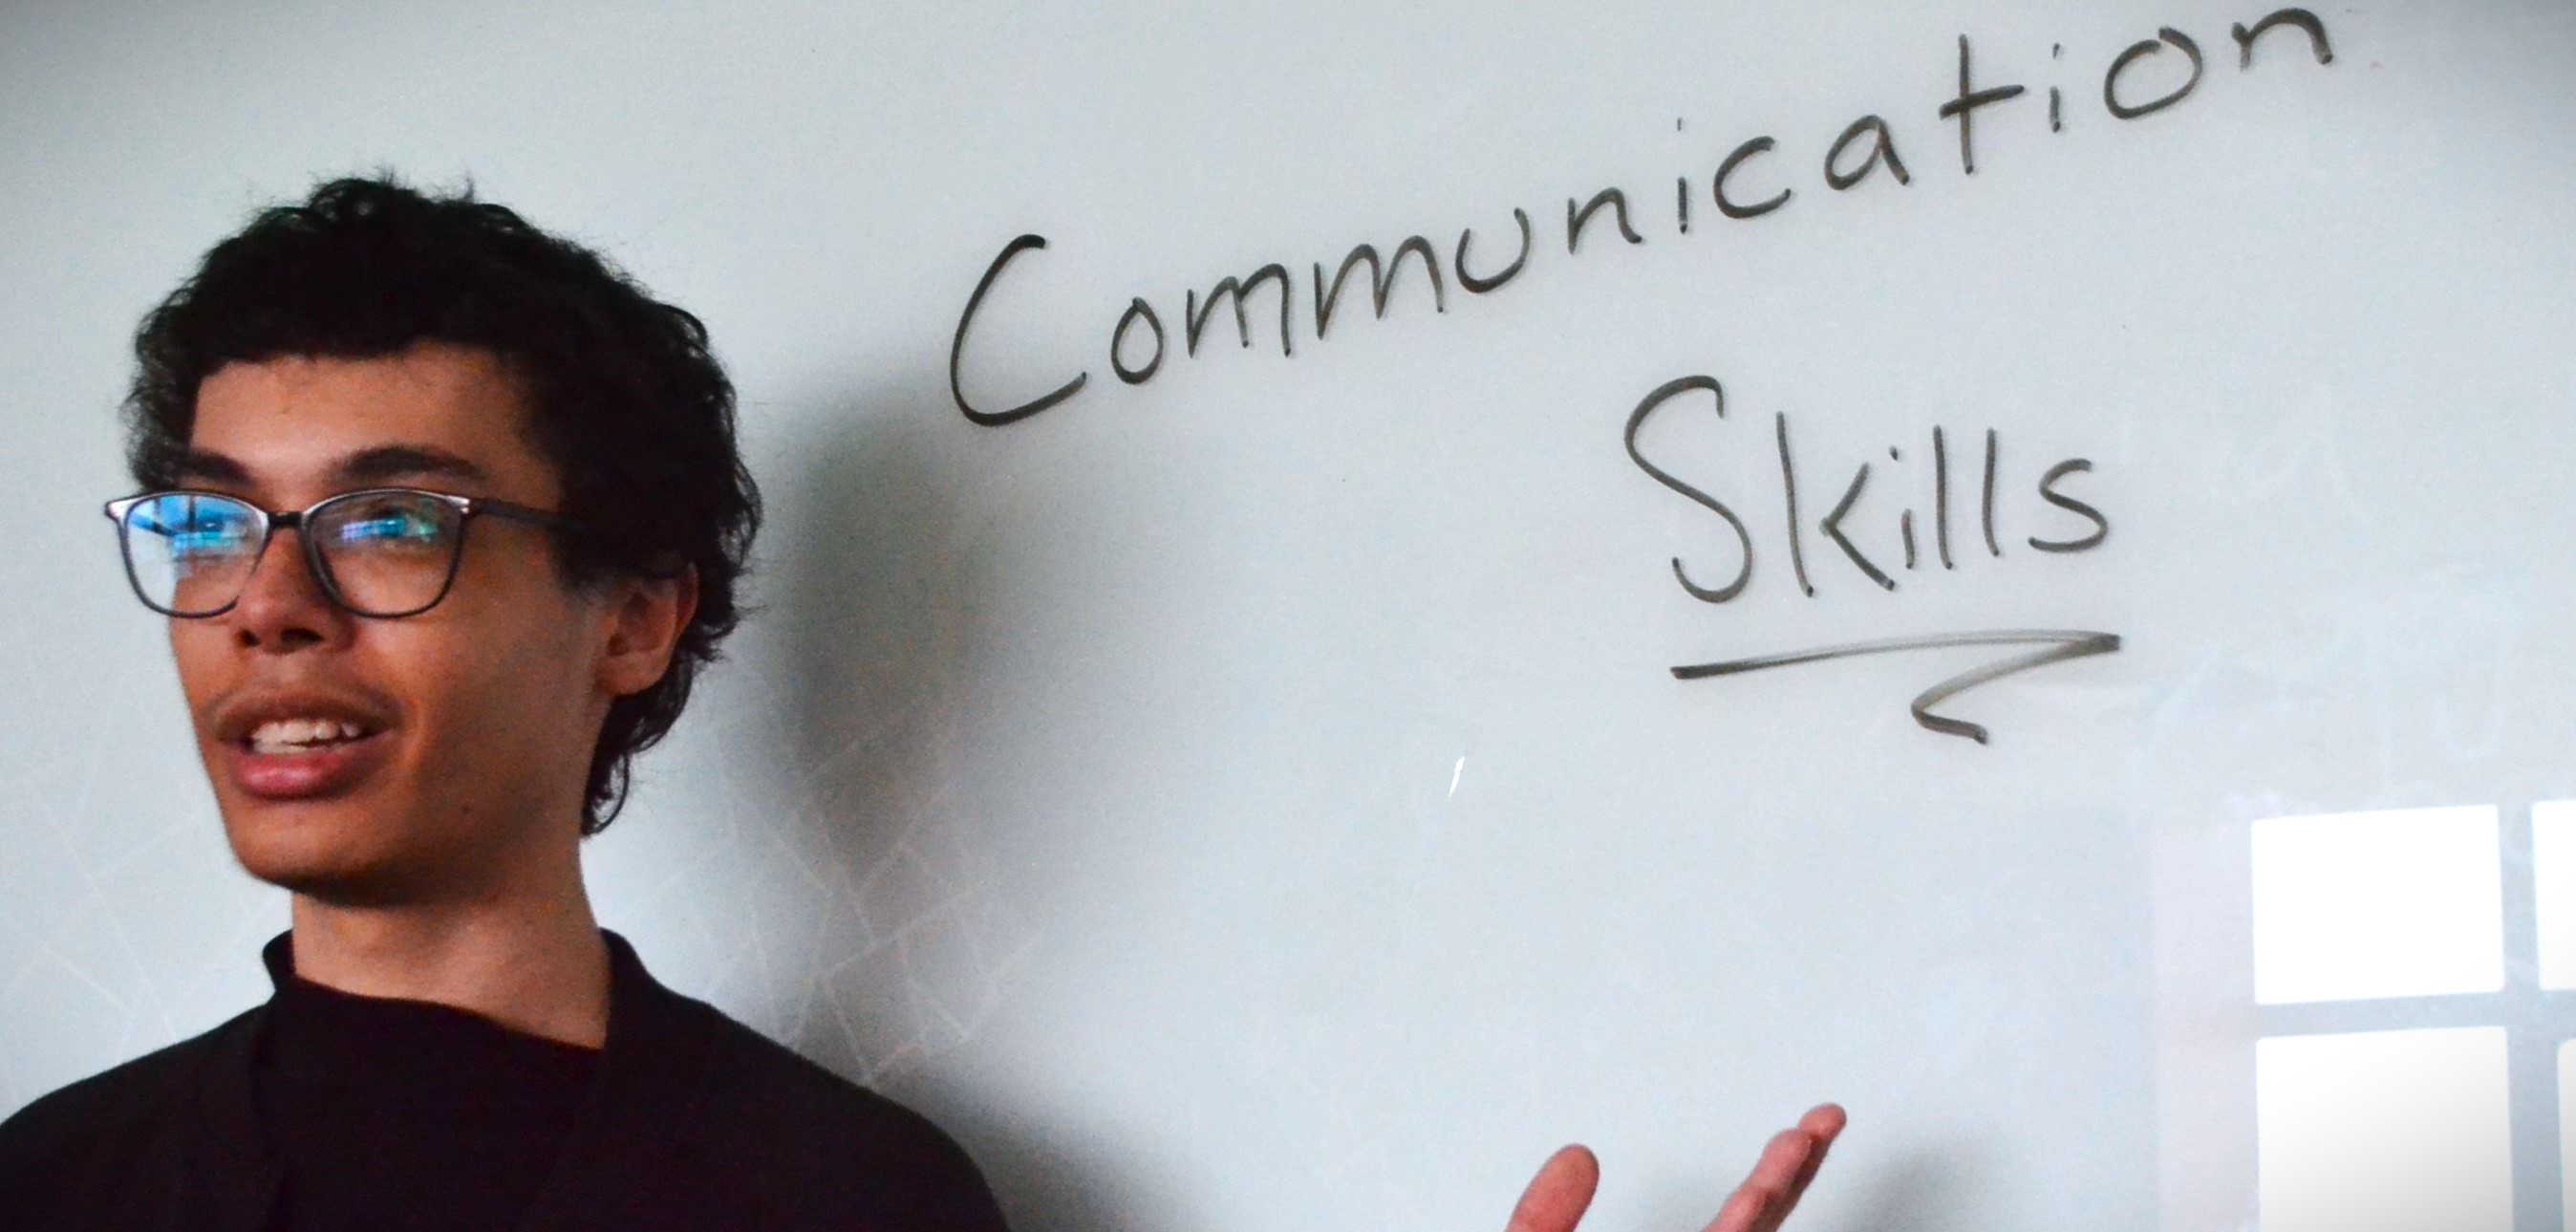 Communication
Skills